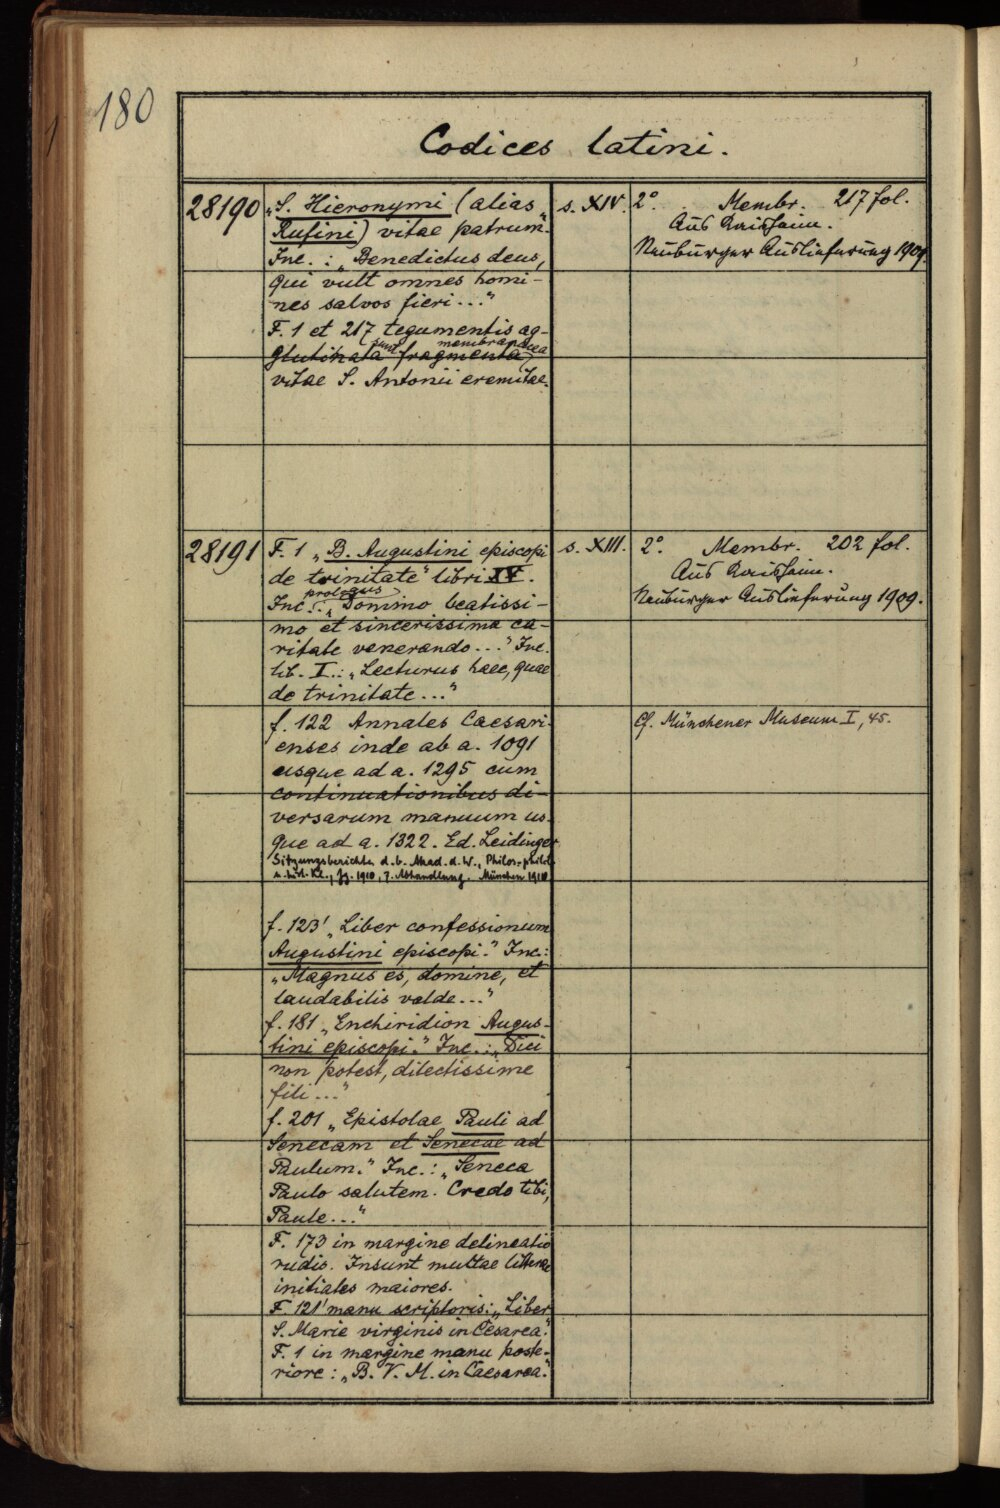 180
Codices latini.
28190
„S. Hieronymi (alias
Rufini) vitae patrum“.
Inc.: „Benedictus deus,
qui vult omnes homi-
nes salvos fieri...“
F. 1 et 217 tegumentis ag-
glutinata sunt fragmenta membranacea
vitae S. Antonii eremitae.
s. XIV.
2°. Membr. 217 fol.
Aus Kaisheim.
Neuburger Auslieferung 1909.
28191
F. 1 „B. Augustini episcopi
de trinitate“ libri XV.
Inc. prologus: „Domino beatissi-
mo et sincerissima ca-
ritate venerando...“ Inc.
lib. I.: „Lecturus haec, quae
de trinitate...“
f. 122 Annales Caesari-
enses inde ab a. 1091
usque ad a. 1295 cum
continuationibus di-
versarum manuum us-
que ad a. 1322. Ed. Leidinger
Sitzungsberichte d. b. Akad. d. W., Philos.-philol.
u. hist. Kl., Jg. 1910, 7. Abhandlung. München 1910
f. 123' „Liber confessionum
Augustini episcopi.“ Inc.:
„Magnus es, domine, et
laudabilis valde...“
f. 181 „Enchiridion Augus-
tini episcopi.“ Inc.: „Dici
non potest, dilectissime
fili...“
f. 201 „Epistolae Pauli ad
Senecam et Senecae ad
Paulum.“ Inc.: „Seneca
Paulo salutem. Credo tibi,
Paule...“
F. 173 in margine delineatio
rudis. Insunt multae litterae
initiales maiores.
F. 121' manu scriptoris: „Liber
S. Marie virginis in Cesarea.“
F. 1 in margine manu poste-
riore: „B. V. M. in Caesarea.“
s. XIII.
2°. Membr. 202 fol.
Aus Kaisheim.
Neuburger Auslieferung 1909.
Cf. Münchener Museum I, 45.